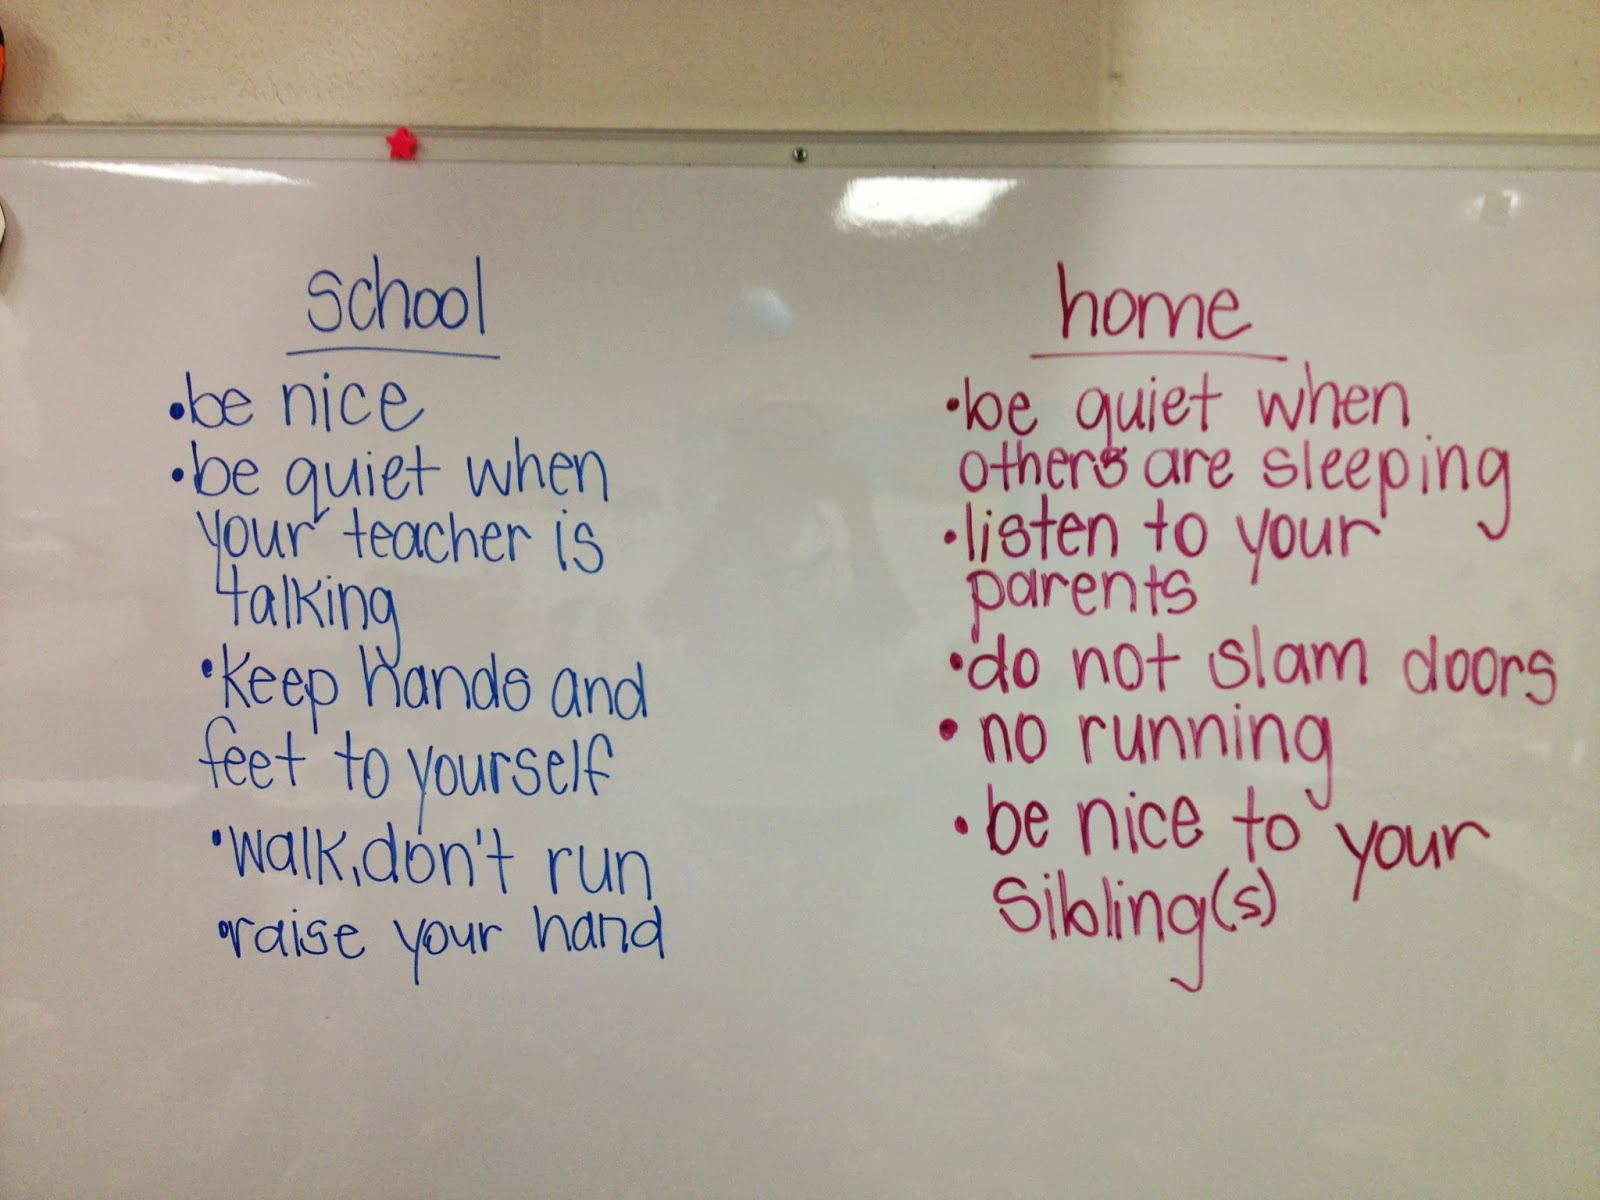 school
•be nice
•be quiet when
your teacher is
talking
•keep hands and
feet to yourself
•walk, don't run
•raise your hand
home
•be quiet when
others are sleeping
•listen to your
parents
•do not slam doors
•no running
•be nice to your
sibling(s)